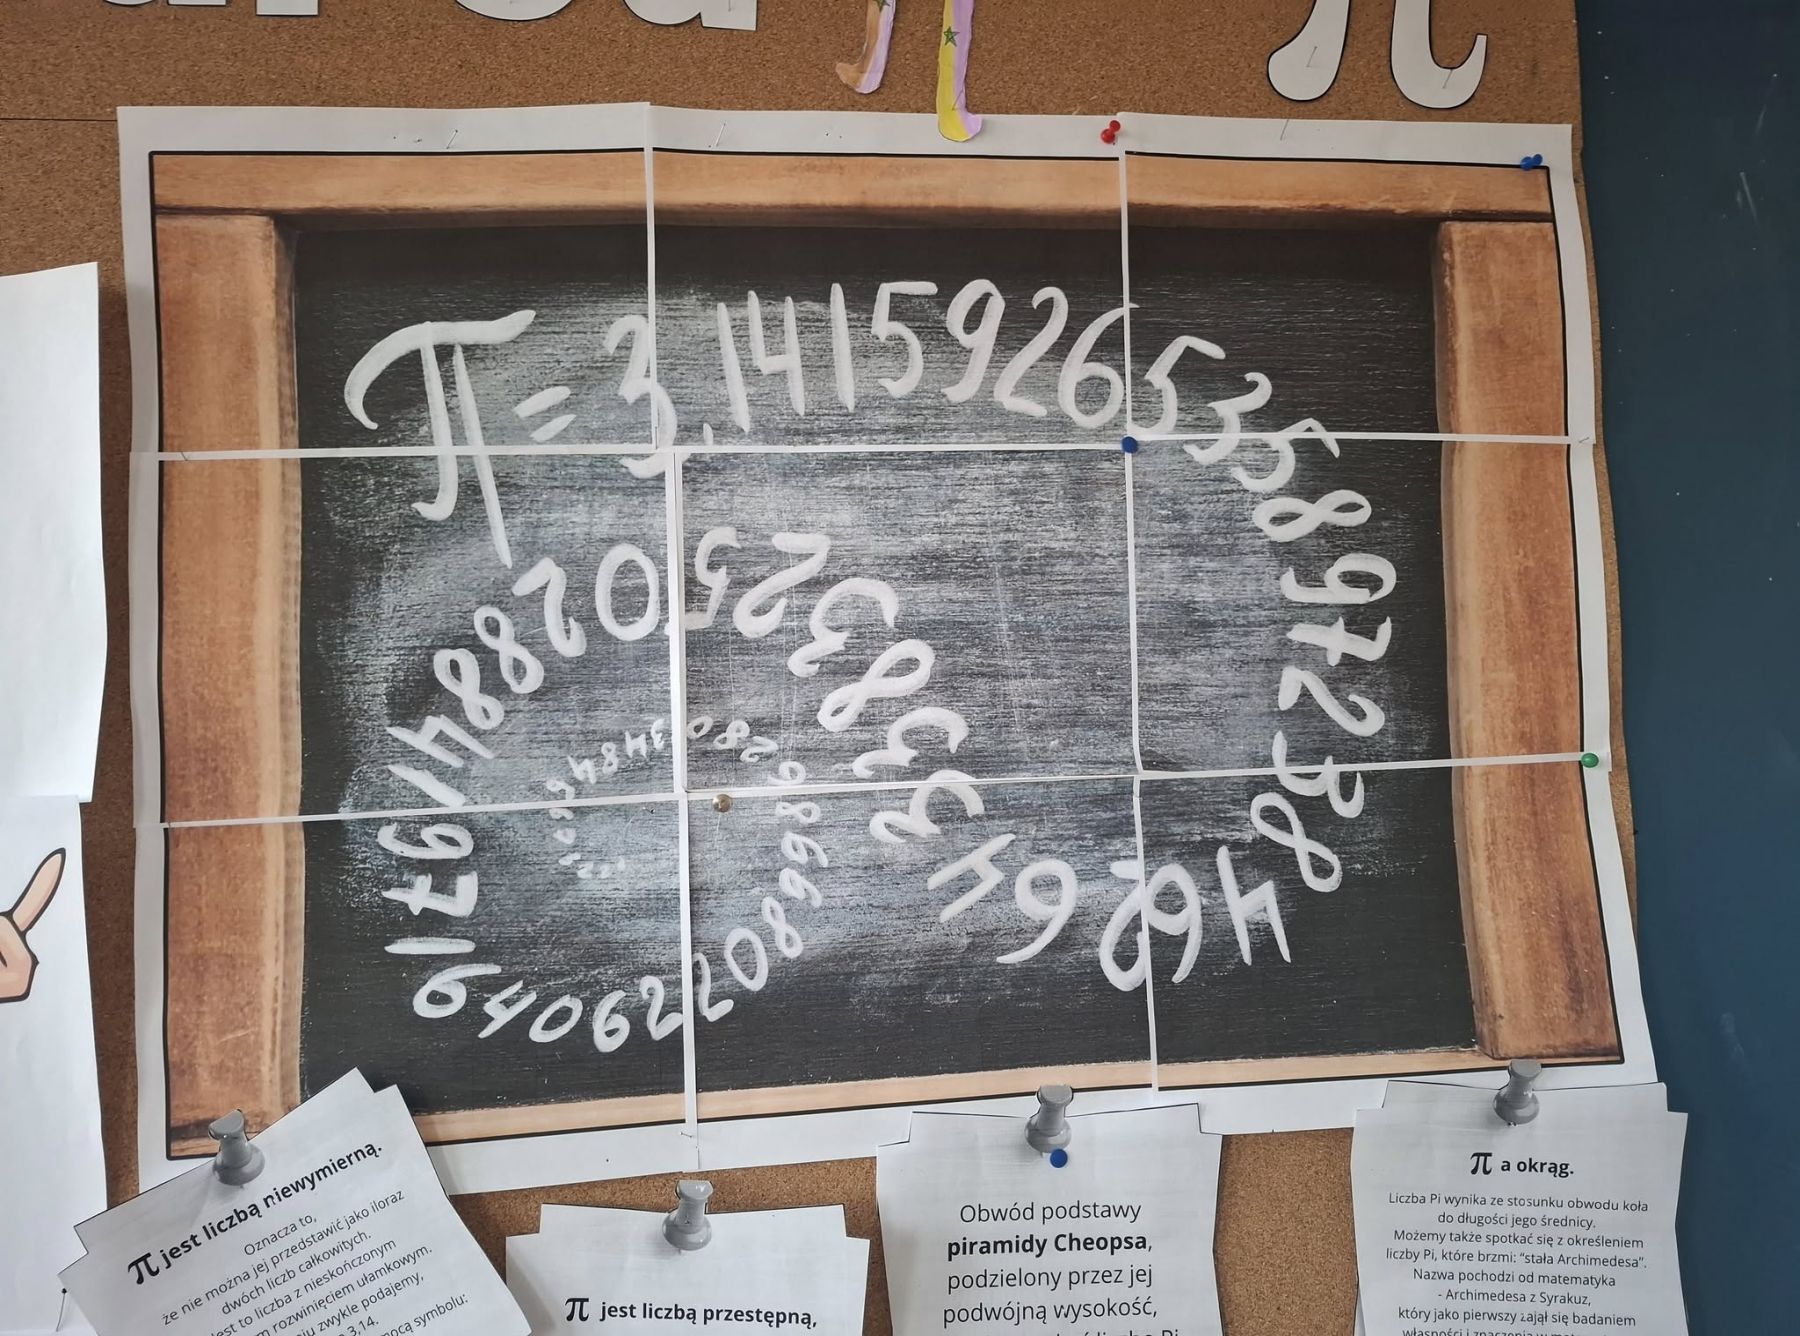 π
π = 3,141592653589723846264338325028841971640622089986280348
π jest liczbą niewymierną.
Oznacza to,
że nie można jej przedstawić jako iloraz
dwóch liczb całkowitych.
Jest to liczba z nieskończonym
rozwinięciem ułamkowym.
zwykle podajemy,
3,14.
mocą symbolu:
π jest liczbą przestępną,
Obwód podstawy
piramidy Cheopsa,
podzielony przez jej
podwójną wysokość,
π a okrąg.
Liczba Pi wynika ze stosunku obwodu koła
do długości jego średnicy.
Możemy także spotkać się z określeniem
liczby Pi, które brzmi: “stała Archimedesa”.
Nazwa pochodzi od matematyka
- Archimedesa z Syrakuz,
który jako pierwszy zajął się badaniem